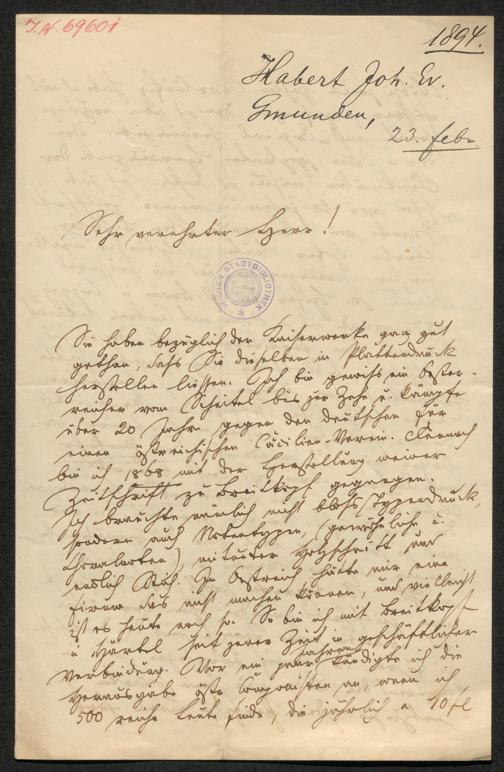 J.N. 69601
1894.
Habert Joh. Ev.
Gmunden,
23. Febr.
Sehr verehrter Herr!
WIENER STADTBIBLIOTHEK
Sie haben bezüglich der Kaiserwerke ganz gut
gethan, dass Sie dieselben in Plattendruck
herstellen liessen. Ich bin gewiss ein Oester-
reicher vom Scheitel bis zur Zehe u. kämpfe
über 20 Jahre gegen den deutschen für
einen österreichischen Cäcilien-Verein. Dennoch
bin ich 1868 mit der Herstellung meiner
Zeitschrift zu Breitkopf gegangen.
Ich brauchte nämlich nicht bloss Typendruck,
sondern auch Notentypen, gewöhnliche u.
Choralnoten, mitunter Holzschnitt und
endlich Stich. In Oestreich hätte mir eine
Firma das nicht machen können, und vielleicht
ist es heute noch so. So bin ich mit Breitkopf
u Härtel seit jener Zeit in geschäftlicher
Verbindung. Vor ein paar Jahren kündigte ich die
Herausgabe öster. Componisten an, wenn ich
500 reiche Leute finde, die jährlich a 10 fl